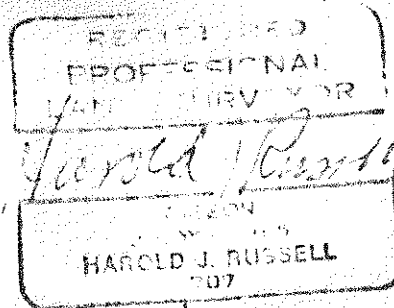 REGISTERED
PROFESSIONAL
LAND SURVEYOR
Harold J. Russell
OREGON
HAROLD J. RUSSELL
707